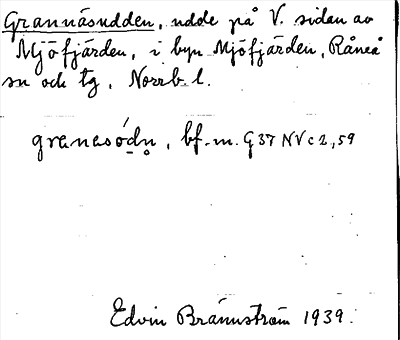 Grannäsudden, udde på V. sidan av
Mjöfjärden, i byn Mjöfjärden, Råneå
sn och tg, Norrb. l.
granasó̱dṇ, bf. m. G 37 NV c 2, 59
Edvin Brännström 1939.